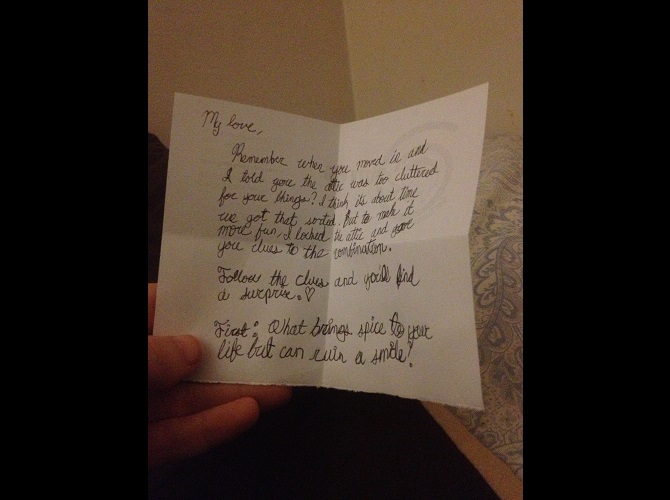 My love,
Remember when you moved in and
I told you the attic was too cluttered
for your things? I think it's about time
we got that sorted. But to make it
more fun, I locked the attic and gave
you clues to the combination.
Follow the clues and you'll find
a surprise. ♡
First: What brings spice to your
life but can ruin a smile?